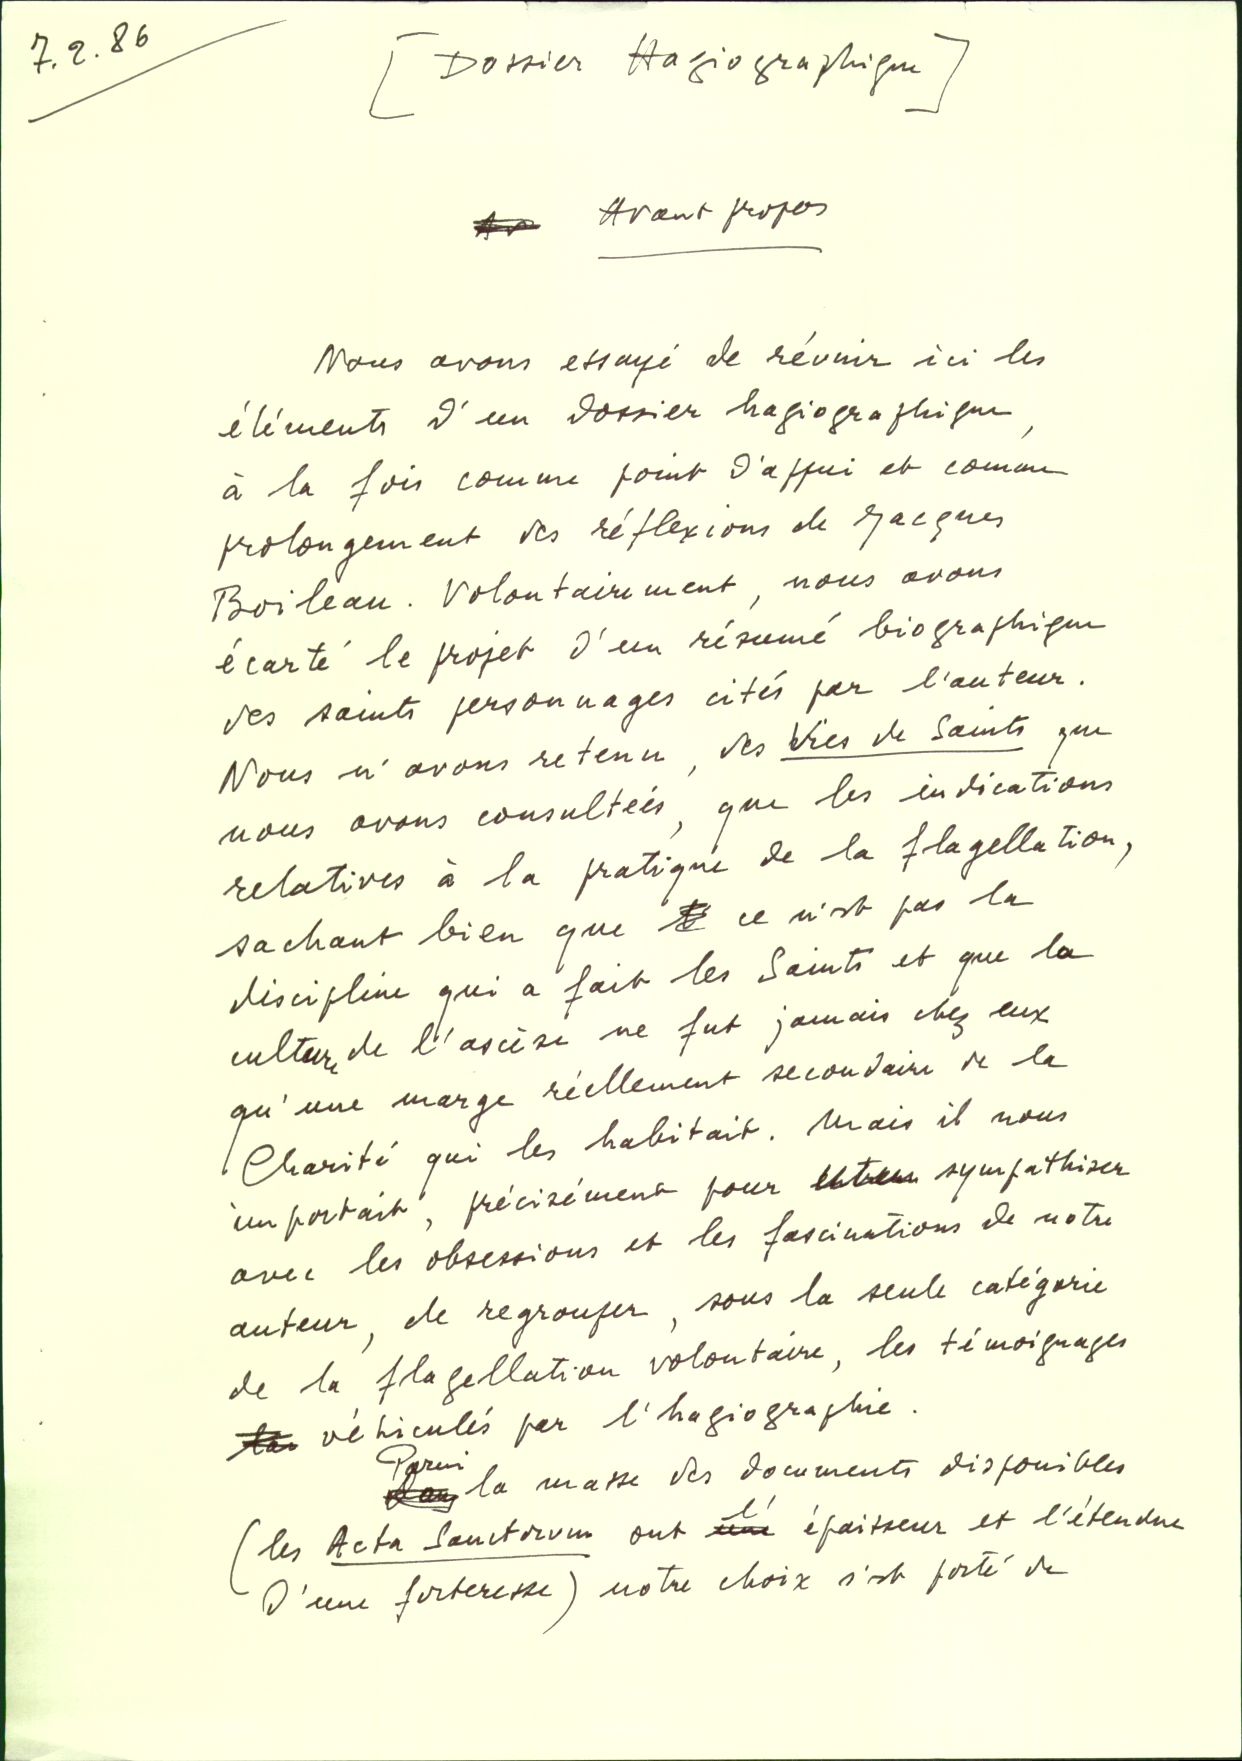 7.2.86
[Dossier Hagiographique]
Avant propos
Nous avons essayé de réunir ici les
éléments d'un dossier hagiographique,
à la fois comme point d'appui et comme
prolongement des réflexions de Jacques
Boileau. Volontairement, nous avons
écarté le projet d'un résumé biographique
des saints personnages cités par l'auteur.
Nous n'avons retenu, des Vies de Saints que
nous avons consultées, que les indications
relatives à la pratique de la flagellation,
sachant bien que ce n'est pas la
discipline qui a fait les Saints et que la
culture de l'ascèse ne fut jamais chez eux
qu'une marge réellement secondaire de la
Charité qui les habitait. Mais il nous
importait, précisément pour sympathiser
avec les obsessions et les fascinations de notre
auteur, de regrouper, sous la seule catégorie
de la flagellation volontaire, les témoignages
véhiculés par l'hagiographie.
Parmi
la masse des documents disponibles
(les Acta Sanctorum ont l'épaisseur et l'étendue
d'une forteresse) notre choix s'est porté de